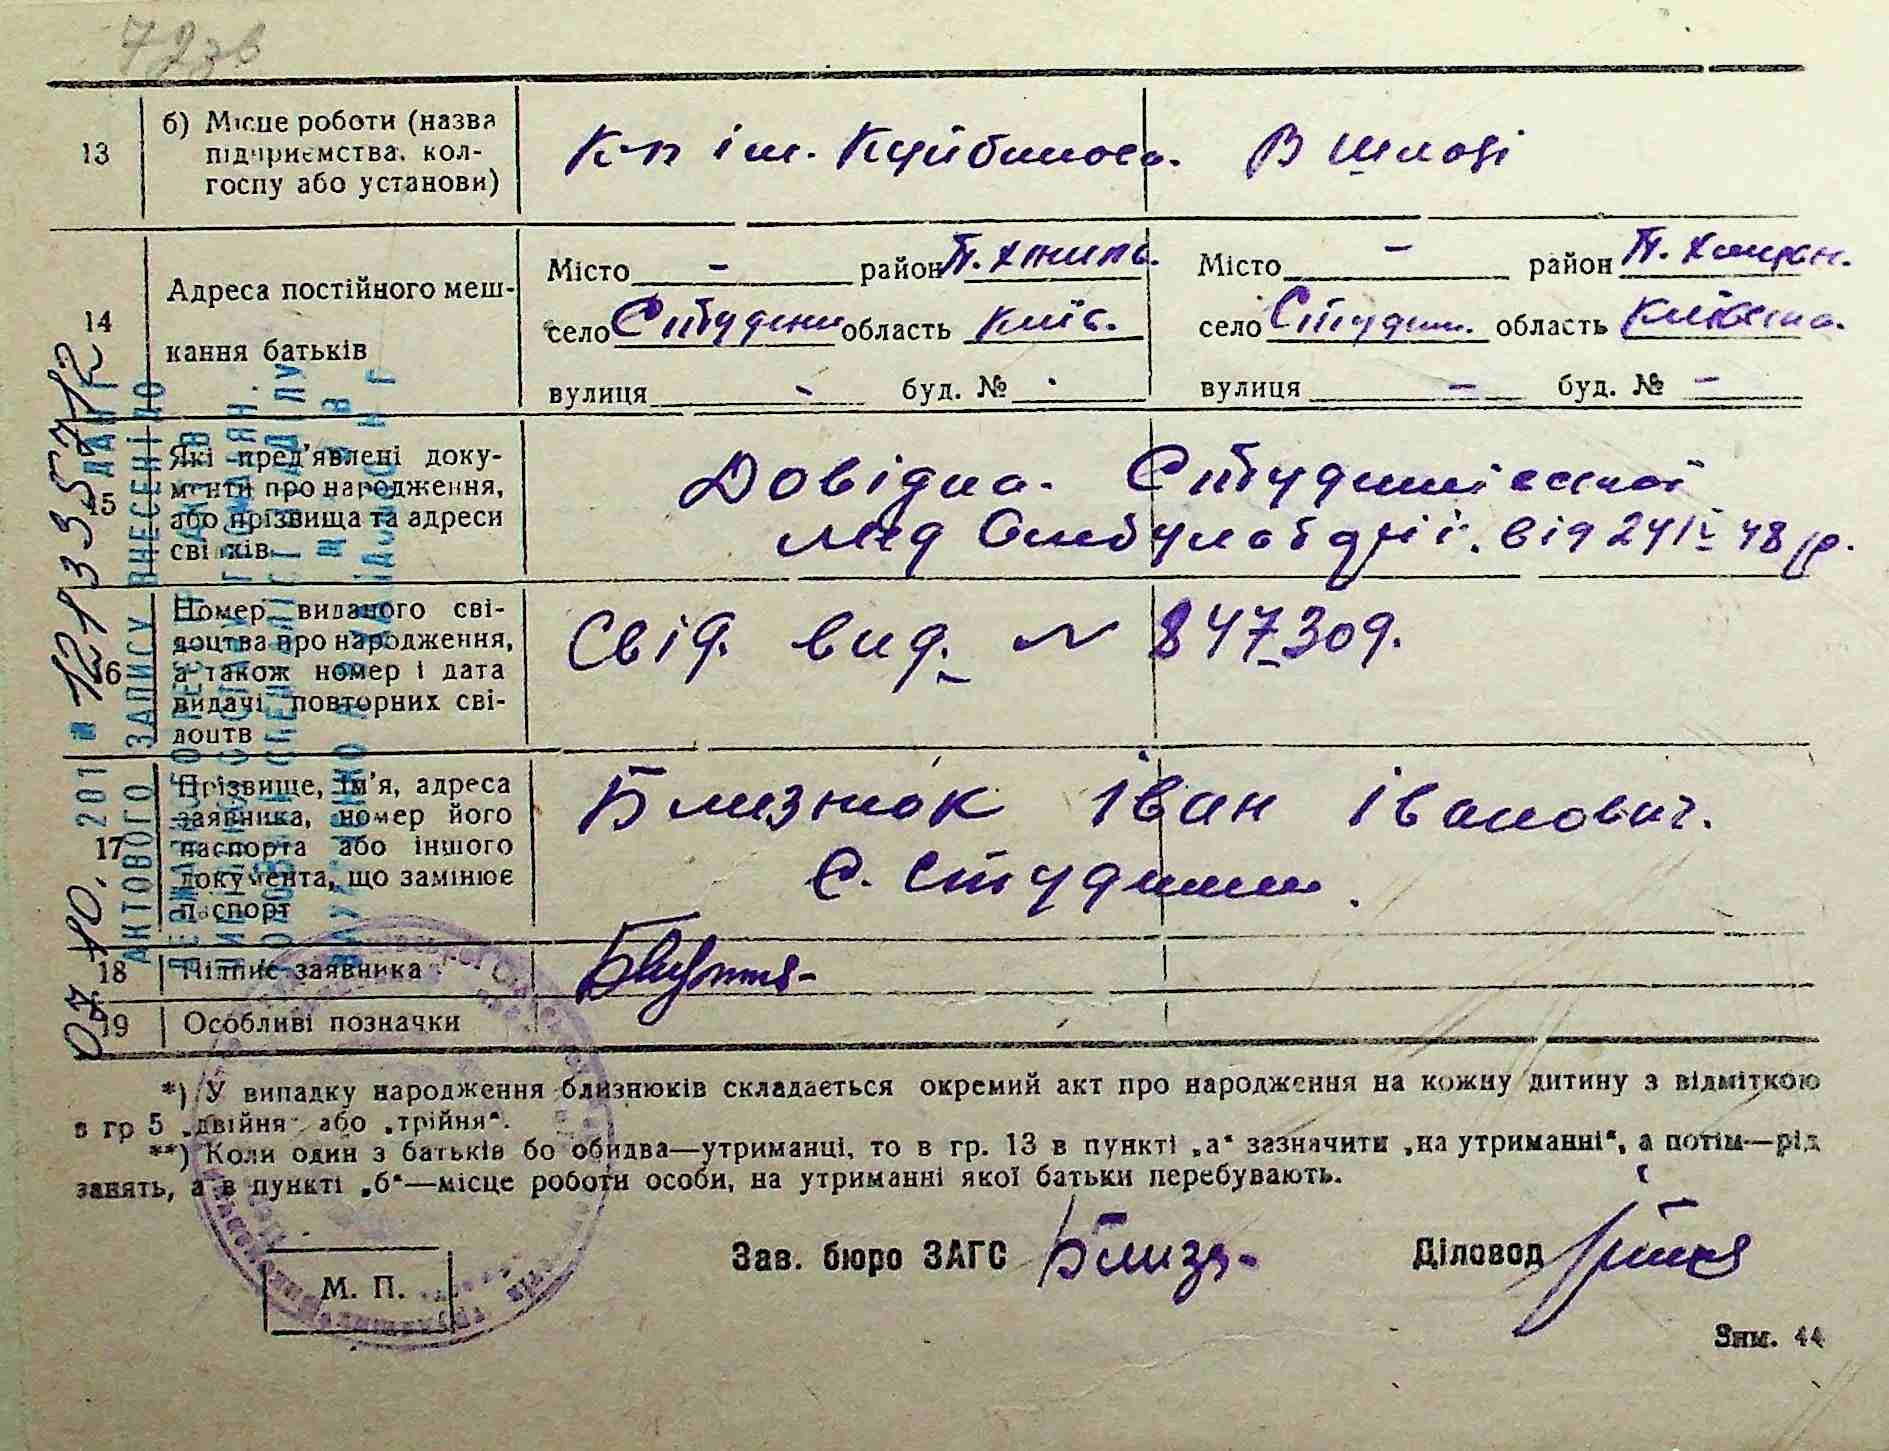 72зв
13
б) Місце роботи (назва
підприємства, кол-
госпу або установи)
К-п ім. Куйбишева. В школі
14
Адреса постійного меш-
кання батьків
Місто - район П. Хмель.
село Студени область Київ.
вулиця - буд. №
Місто - район П. Хмельн.
село Студен. область Київська.
вулиця - буд. № -
15
Які пред'явлені доку-
менти про народження,
або прізвища та адреси
свідків
Довідка. Студениківської
мед амбулаторії. від 24/IV 48 р.
16
Номер виданого сві-
доцтва про народження,
а також номер і дата
видачі повторних сві-
доцтв
Свід. вид. № 847309.
17
Прізвище, ім'я, адреса
заявника, номер його
паспорта або іншого
документа, що замінює
паспорт
Близнюк Іван Іванович.
С. Студени.
18
Підпис заявника
19
Особливі позначки
*) У випадку народження близнюків складається окремий акт про народження на кожну дитину з відміткою
в гр 5 „двійня" або „трійня".
**) Коли один з батьків бо обидва—утриманці, то в гр. 13 в пункті „а" зазначити „на утриманні", а потім—рід
занять, а в пункті „б"—місце роботи особи, на утриманні якої батьки перебувають.
Зав. бюро ЗАГС Близн-
Діловод
М. П.
Зим. 44
07. 10. 201 12133557
АКТОВОГО ЗАПИСУ ВНЕСЕНІ ДО